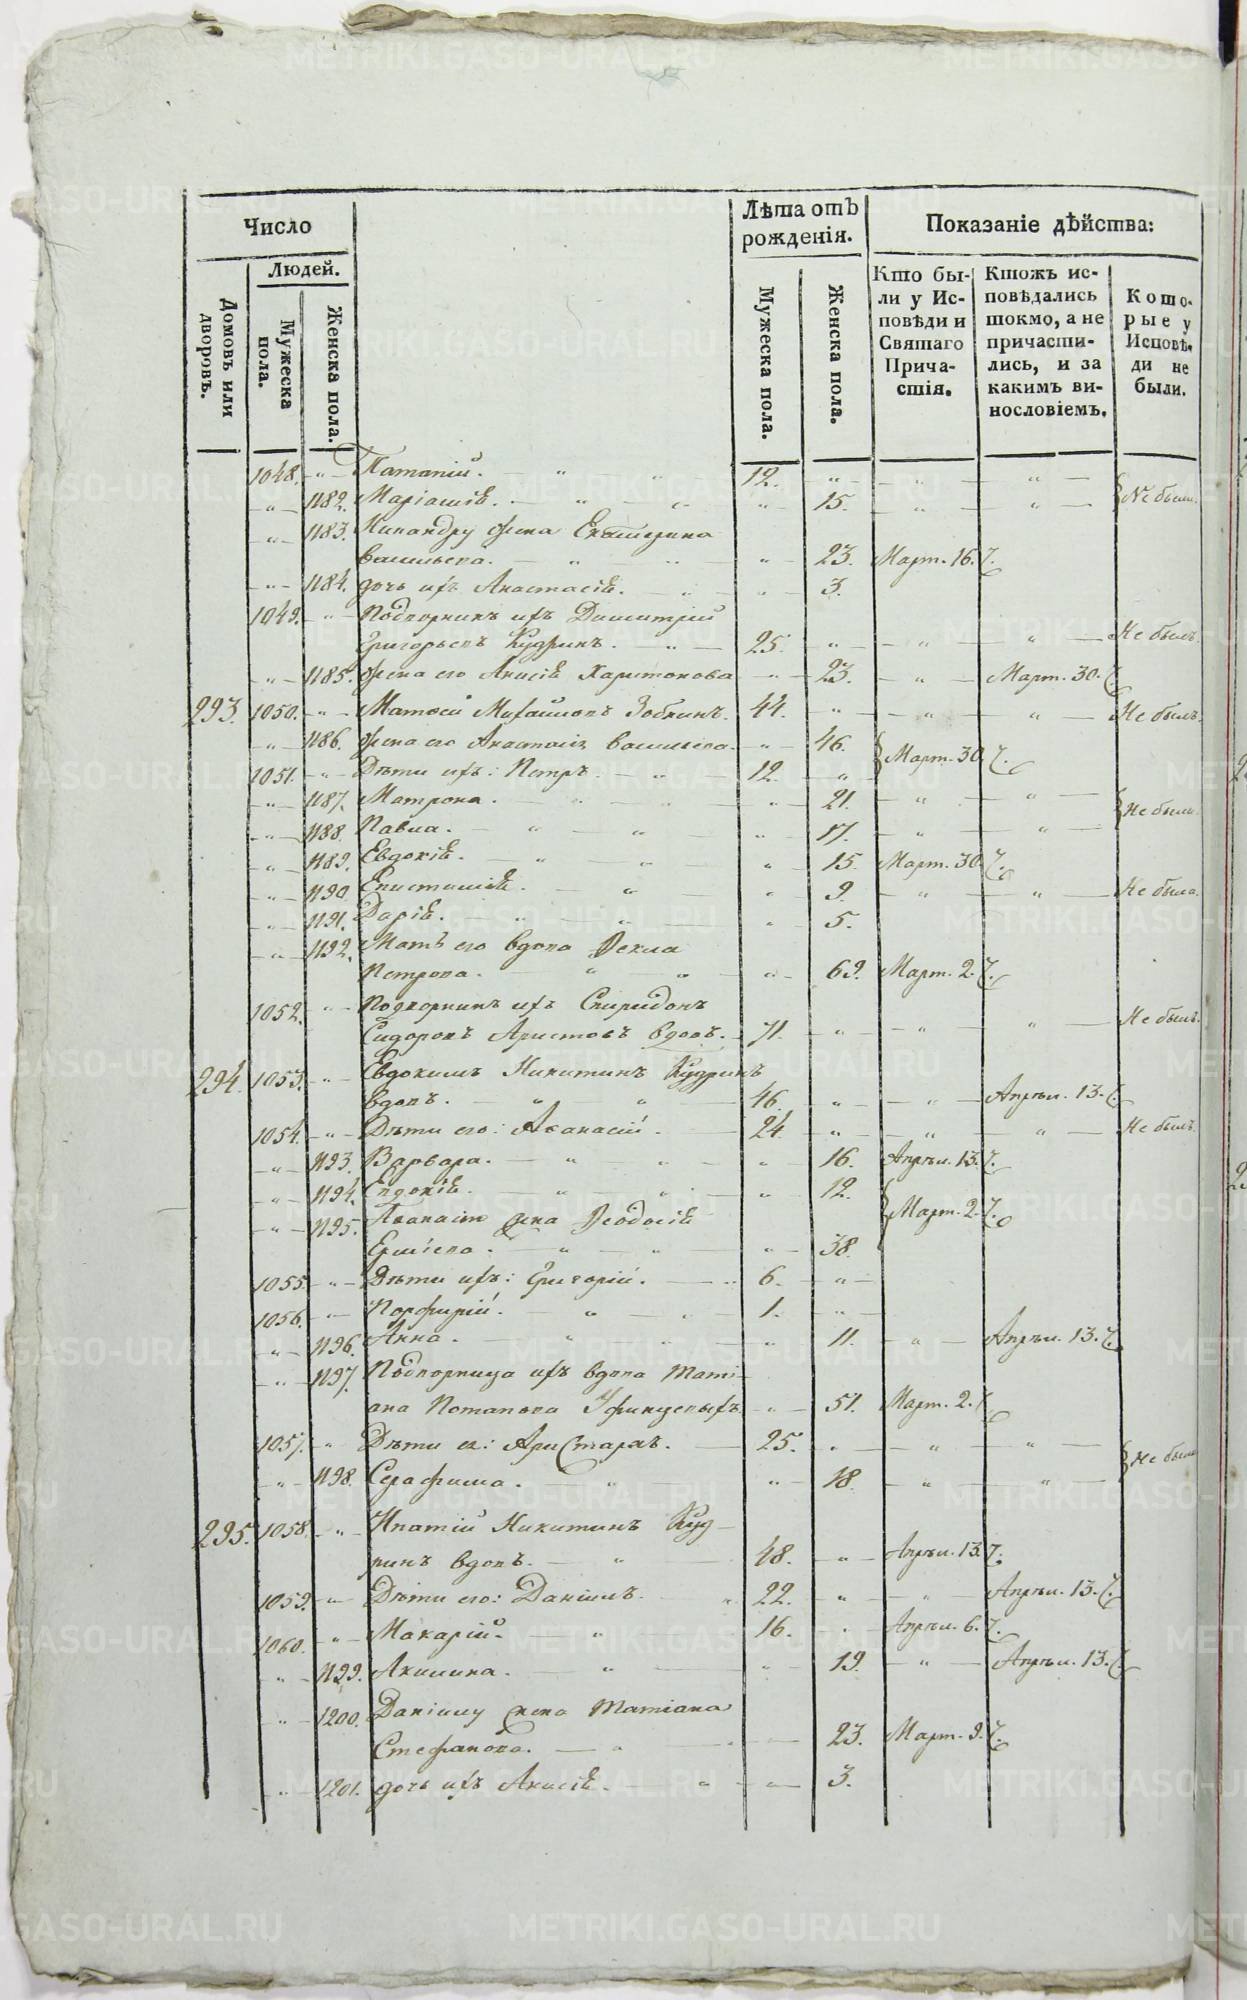 Число
Людей.
Домовъ или дворовъ.
Мужеска пола.
Женска пола.
Лѣта отъ рожденія.
Мужеска пола.
Женска пола.
Показаніе дѣйства:
Кто бы-
ли у Ис-
повѣди и
Святаго
Прича-
стія.
Ктожъ ис-
повѣдались
токмо, а не
причасти-
лись, и за
какимъ ви-
нословіемъ.
Кото-
рые у
Исповѣ-
ди не
были.
1048. „ Патапій. „ „ 12. „ „ „
„ 1182. Маріамія. „ „ „ 15. „ „ Не были.
„ 1183. Никандру жена Екатерина
Васильева. „ „ „ 23. Март. 16. 7.
„ 1184. дочь ихъ Анастасія. „ „ 3.
1049. „ Подворникъ ихъ Димитрій
Григорьевъ Кудринъ. „ 25. „ „ „ Не былъ
„ 1185. жена его Анисія Харитонова „ 23. „ Март. 30. 7.
293. 1050. „ Матвей Михайловъ Зобнинъ. 44. „ „ „ Не былъ.
„ 1186. жена его Анастасія Васильева. „ 46.
Март. 30. 7.
1051. „ Дѣти ихъ: Петръ. „ 12. „
„ 1187. Матрона. „ „ „ 21. „ „
Не были.
„ 1188. Павла. „ „ „ 17. „ „
„ 1189. Евдокія. „ „ „ 15. Март. 30. 7.
„ 1190. Епистимія. „ „ 9. „ „ Не была.
„ 1191. Дарія. „ „ „ 5.
„ 1192. Мать его вдова Фекла
Петрова. „ „ „ 69. Март. 2. 7.
1052. „ Подворникъ ихъ Спиридонъ
Сидоровъ Аристовъ вдовъ. 71. „ „ „ Не былъ.
294. 1053. „ Евдокимъ Никитинъ Кудринъ
вдовъ. „ „ 46. „ „ Апрѣл. 13. 7.
1054. „ Дѣти его: Аѳанасій. 24. „ „ „ Не былъ.
„ 1193. Варвара. „ „ „ 16. Апрѣл. 13. 7.
„ 1194. Евдокія. „ „ „ 12.
Март. 2. 7.
„ 1195. Аѳанасію жена Ѳеодосія
„ „ „ 38.
1055. „ Дѣти ихъ: Григорій. „ 6. „
1056. „ Порфирій. „ „ 1. „
„ 1196. Анна. „ „ „ 11. „ Апрѣл. 13. 7.
„ 1197. Подворница ихъ вдова Тати-
ана Потапова „ 51. Март. 2. 7.
1057. „ Дѣти ея: Аристархъ. 25. „ „ „
Не были
„ 1198. Серафима. „ „ 18. „ „
295. 1058. „ Ипатій Никитинъ Куд-
ринъ вдовъ. „ 48. „ Апрѣл. 13. 7.
1059. „ Дѣти его: Даніилъ. „ 22. „ „ Апрѣл. 13. 7.
1060. „ Макарій. „ 16. „ Апрѣл. 6. 7.
„ 1199. Акилина. „ „ 19. „ Апрѣл. 13. 7.
„ 1200. Даніилу жена Татіана
Стефанова. „ „ 23. Март. 9. 7.
„ 1201. дочь ихъ Анисія. „ „ 3.
METRIKI.GASO-URAL.RU